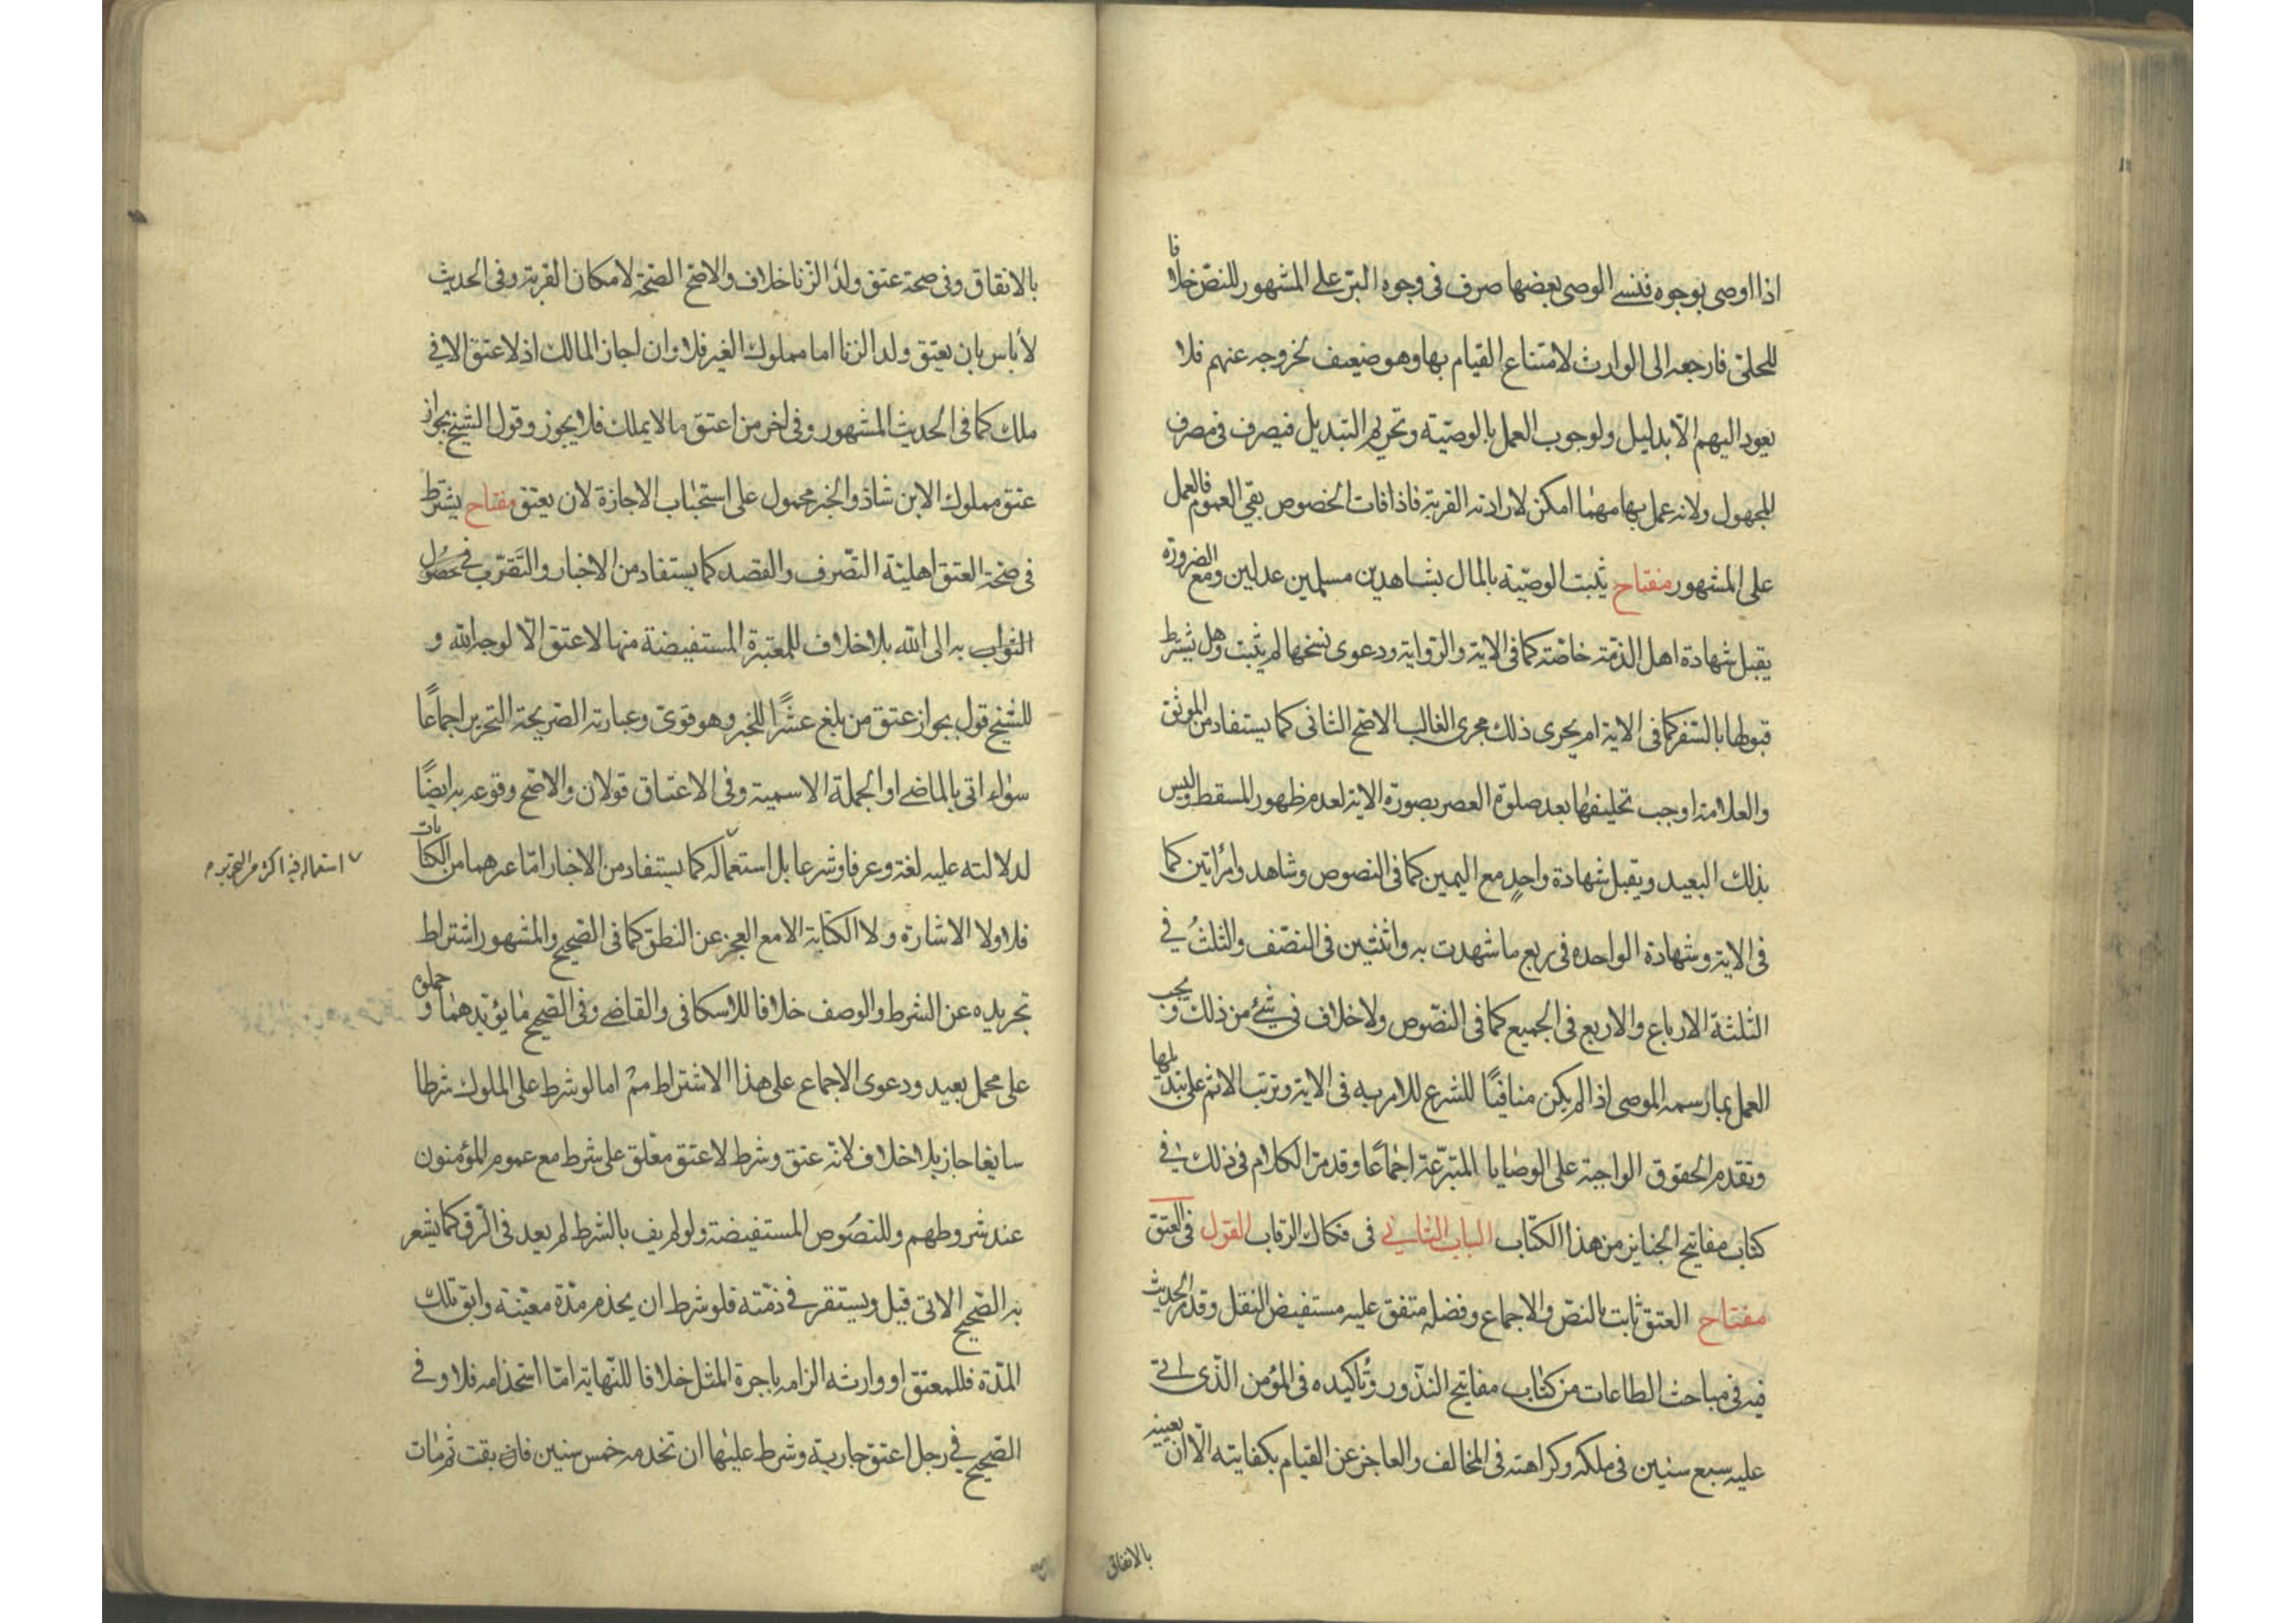 اذا اوصى بوجوه فنسى الوصى بعضها صرف فى وجوه البر على المشهور للنص خلافا
للحلى فارجعه الى الوارث لامتناع القيام بها وهو ضعيف لخروجه عنهم فلا
يعود اليهم الا بدليل ولوجوب العمل بالوصية وتحريم التبديل فيصرف فى مصرف
المجهول ولانه عمل بها مهما امكن لارادته القربة فاذا فات الخصوص بقى العموم فالعمل
على المشهور مفتاح يثبت الوصية بالمال بشاهدين مسلمين عدلين ومع الضرورة
يقبل شهادة اهل الذمة خاصة كما فى الاية والرواية ودعوى نسخها لم يثبت وهل يشترط
قبولها بالسفر كما فى الاية ام يجرى ذلك مجرى الغالب الاصح الثانى كما يستفاد من الموثق
والعلامة اوجب تحليفها بعد صلوة العصر بصورة الاية لعدم ظهور المسقط وليس
بذلك البعيد ويقبل شهادة واحد مع اليمين كما فى النصوص وشاهد وامرأتين كما
فى الاية وشهادة الواحده فى ربع ما شهدت به واثنتين فى النصف والثلث فى
الثلثة الارباع والاربع فى الجميع كما فى النصوص ولا خلاف فى شئ من ذلك ويجب
العمل بما رسمه الموصى اذا لم يكن منافيا للشرع للامر به فى الاية وترتب الاثم على تبديلها
وتقدم الحقوق الواجبة على الوصايا المتبرعة اجماعا وقد مر الكلام فى ذلك فى
كتاب مفاتيح الجنايز من هذا الكتاب الباب الثانى فى فكاك الرقاب القول فى العتق
مفتاح العتق ثابت بالنص والاجماع وفضله متفق عليه مستفيض النقل وقد مر الحديث
فيه فى مباحث الطاعات من كتاب مفاتيح النذور وتأكيده فى المؤمن الذى اتى
عليه سبع سنين فى ملكه وكراهته فى المخالف والعاجز عن القيام بكفايته الا ان يعينه
بالانفاق
بالانفاق وفى صحة عتق ولد الزنا خلاف والاصح الصحة لامكان القربة وفى الحديث
لا باس بان يعتق ولد الزنا اما مملوك الغير فلا وان اجاز المالك اذ لا عتق الا فى
ملك كما فى الحديث المشهور وفى اخر من اعتق ما لا يملك فلا يجوز وقول الشيخ بجواز
عتق مملوك الابن شاذ والخبر محمول على استحباب الاجازة لان يعتق مفتاح يشترط
فى صحة العتق اهلية التصرف والقصد كما يستفاد من الاخبار والتقرب فى حصول
الثواب به الى الله بلا خلاف للمعتبرة المستفيضة منها لا عتق الا لوجه الله و
للشيخ قول بجواز عتق من بلغ عشرا للخبر وهو قوى وعبارته الصريحة التحرير اجماعا
سواء اتى بالماضى او الجملة الاسمية وفى الاعتاق قولان والاصح وقوعه به ايضا
لدلالته عليه لغة وعرفا وشرعا بل استعماله كما يستفاد من الاخبار اما غيرهما من الكنايات
استعماله فيه اكثر من التحرير
فلا ولا الاشارة ولا الكتابة الا مع العجز عن النطق كما فى الصحيح والمشهور اشتراط
تجريده عن الشرط والوصف خلافا للاسكافى والقاضى وفى الصحيح ما يؤيدهما وحملوه
على محمل بعيد ودعوى الاجماع على هذا الاشتراط مم اما لو شرط على المملوك شرطا
سايغا جاز بلا خلاف لانه عتق وشرط لا عتق معلق على شرط مع عموم المؤمنون
عند شروطهم وللنصوص المستفيضة ولو لم يف بالشرط لم يعد فى الرق كما يشعر
به الصحيح الاتى قيل ويستقر فى ذمته فلو شرط ان يخدم مدة معينة وابق تلك
المدة فللمعتق او وارثه الزامه باجرة المثل خلافا للنهاية اما استخدامه فلا وفى
الصحيح فى رجل اعتق جارية وشرط عليها ان تخدمه خمس سنين فابقت ثم مات